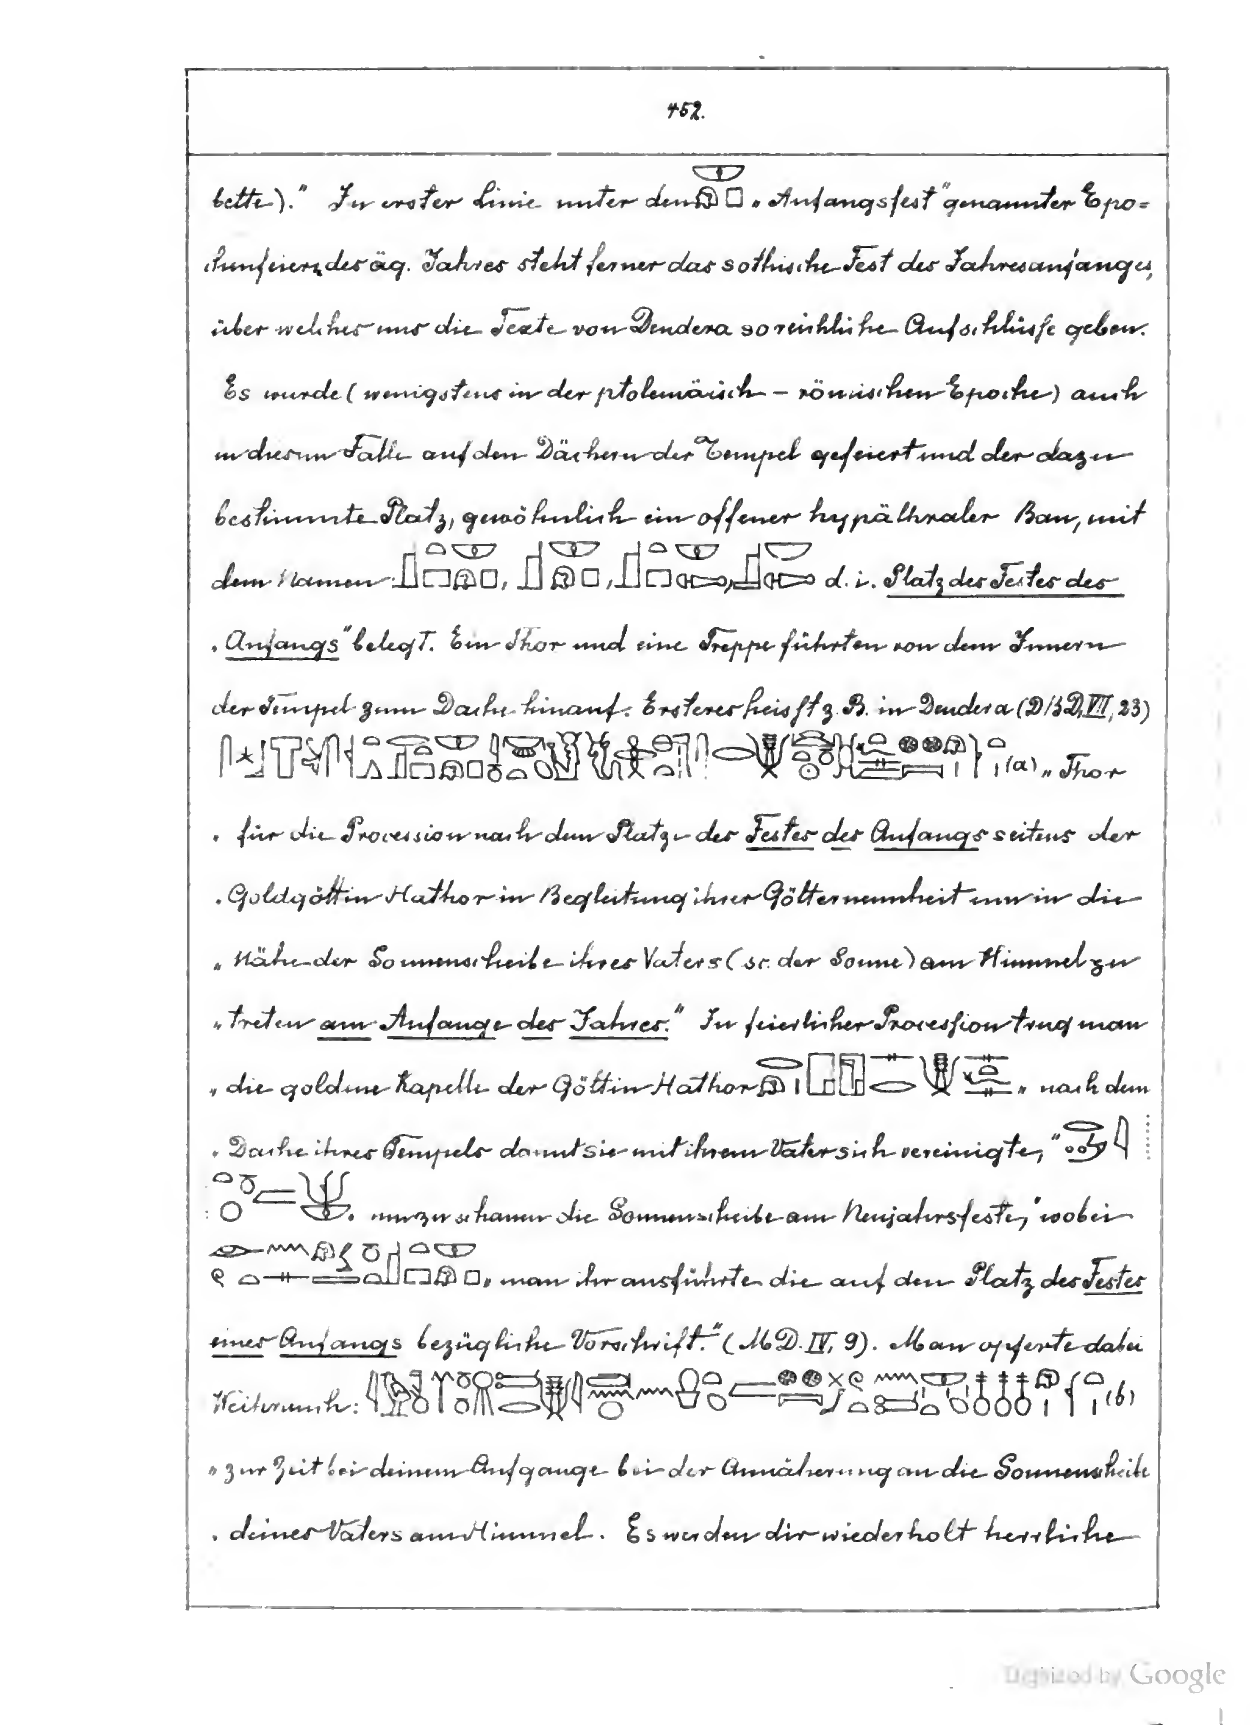 452.
bette)." In erster Linie unter den „Anfangsfest" genannter Epo=
chenfeiern des äg. Jahres steht ferner das sothische Fest des Jahresanfanges,
über welches uns die Texte von Dendera so reichliche Aufschlüsse geben.
Es wurde (wenigstens in der ptolemäisch – römischen Epoche) auch
in diesem Falle auf den Dächern der Tempel gefeiert und der dazu
bestimmte Platz, gewöhnlich ein offener hypäthraler Bau, mit
dem Namen: , , , d. i. Platz des Festes des
„Anfangs" belegt. Ein Thor und eine Treppe führten von dem Innern
der Tempel zum Dache hinauf. Ersteres heisst z. B. in Dendera (DbD, VII, 23)
(a) „Thor
„für die Procession nach dem Platze des Festes des Anfangs seitens der
„Goldgöttin Hathor in Begleitung ihrer Götterneunheit um in die
„Nähe der Sonnenscheibe ihres Vaters (sc. der Sonne) am Himmel zu
„treten am Anfange des Jahres." In feierlicher Procession trug man
„die goldene Kapelle der Göttin Hathor „nach dem
„Dache ihres Tempels damit sie mit ihrem Vater sich vereinigte,"
„um zu schauen die Sonnenscheibe am Neujahrsfeste," wobei
„man ihr ausführte die auf den Platz des Festes
eines Anfangs bezügliche Vorschrift." (MD. IV, 9). Man opferte dabei
Weihrauch: (b)
„zur Zeit bei deinem Aufgange bei der Annäherung an die Sonnenscheibe
„deines Vaters am Himmel. Es werden dir wiederholt herrliche
Digitized by Google